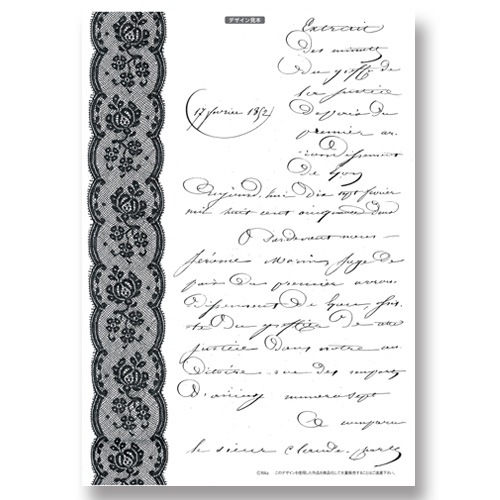 デザイン見本
Extrait
des minutes
du greffe de
la justice
17 février 1852
de paix du
premier ar-
rondissement
de Lyon
Aujourd'hui dix sept février
mil huit cent cinquante deux
Pardevant nous
Jérôme Morin juge de
paix du premier arron-
dissement de Lyon, assis-
té du greffier de
justice dans notre au-
ditoire rue des
d'ainay numéro sept
A comparu
le sieur Claude
このデザインを使用した作品の商品化して大量販売することはご遠慮下さい。